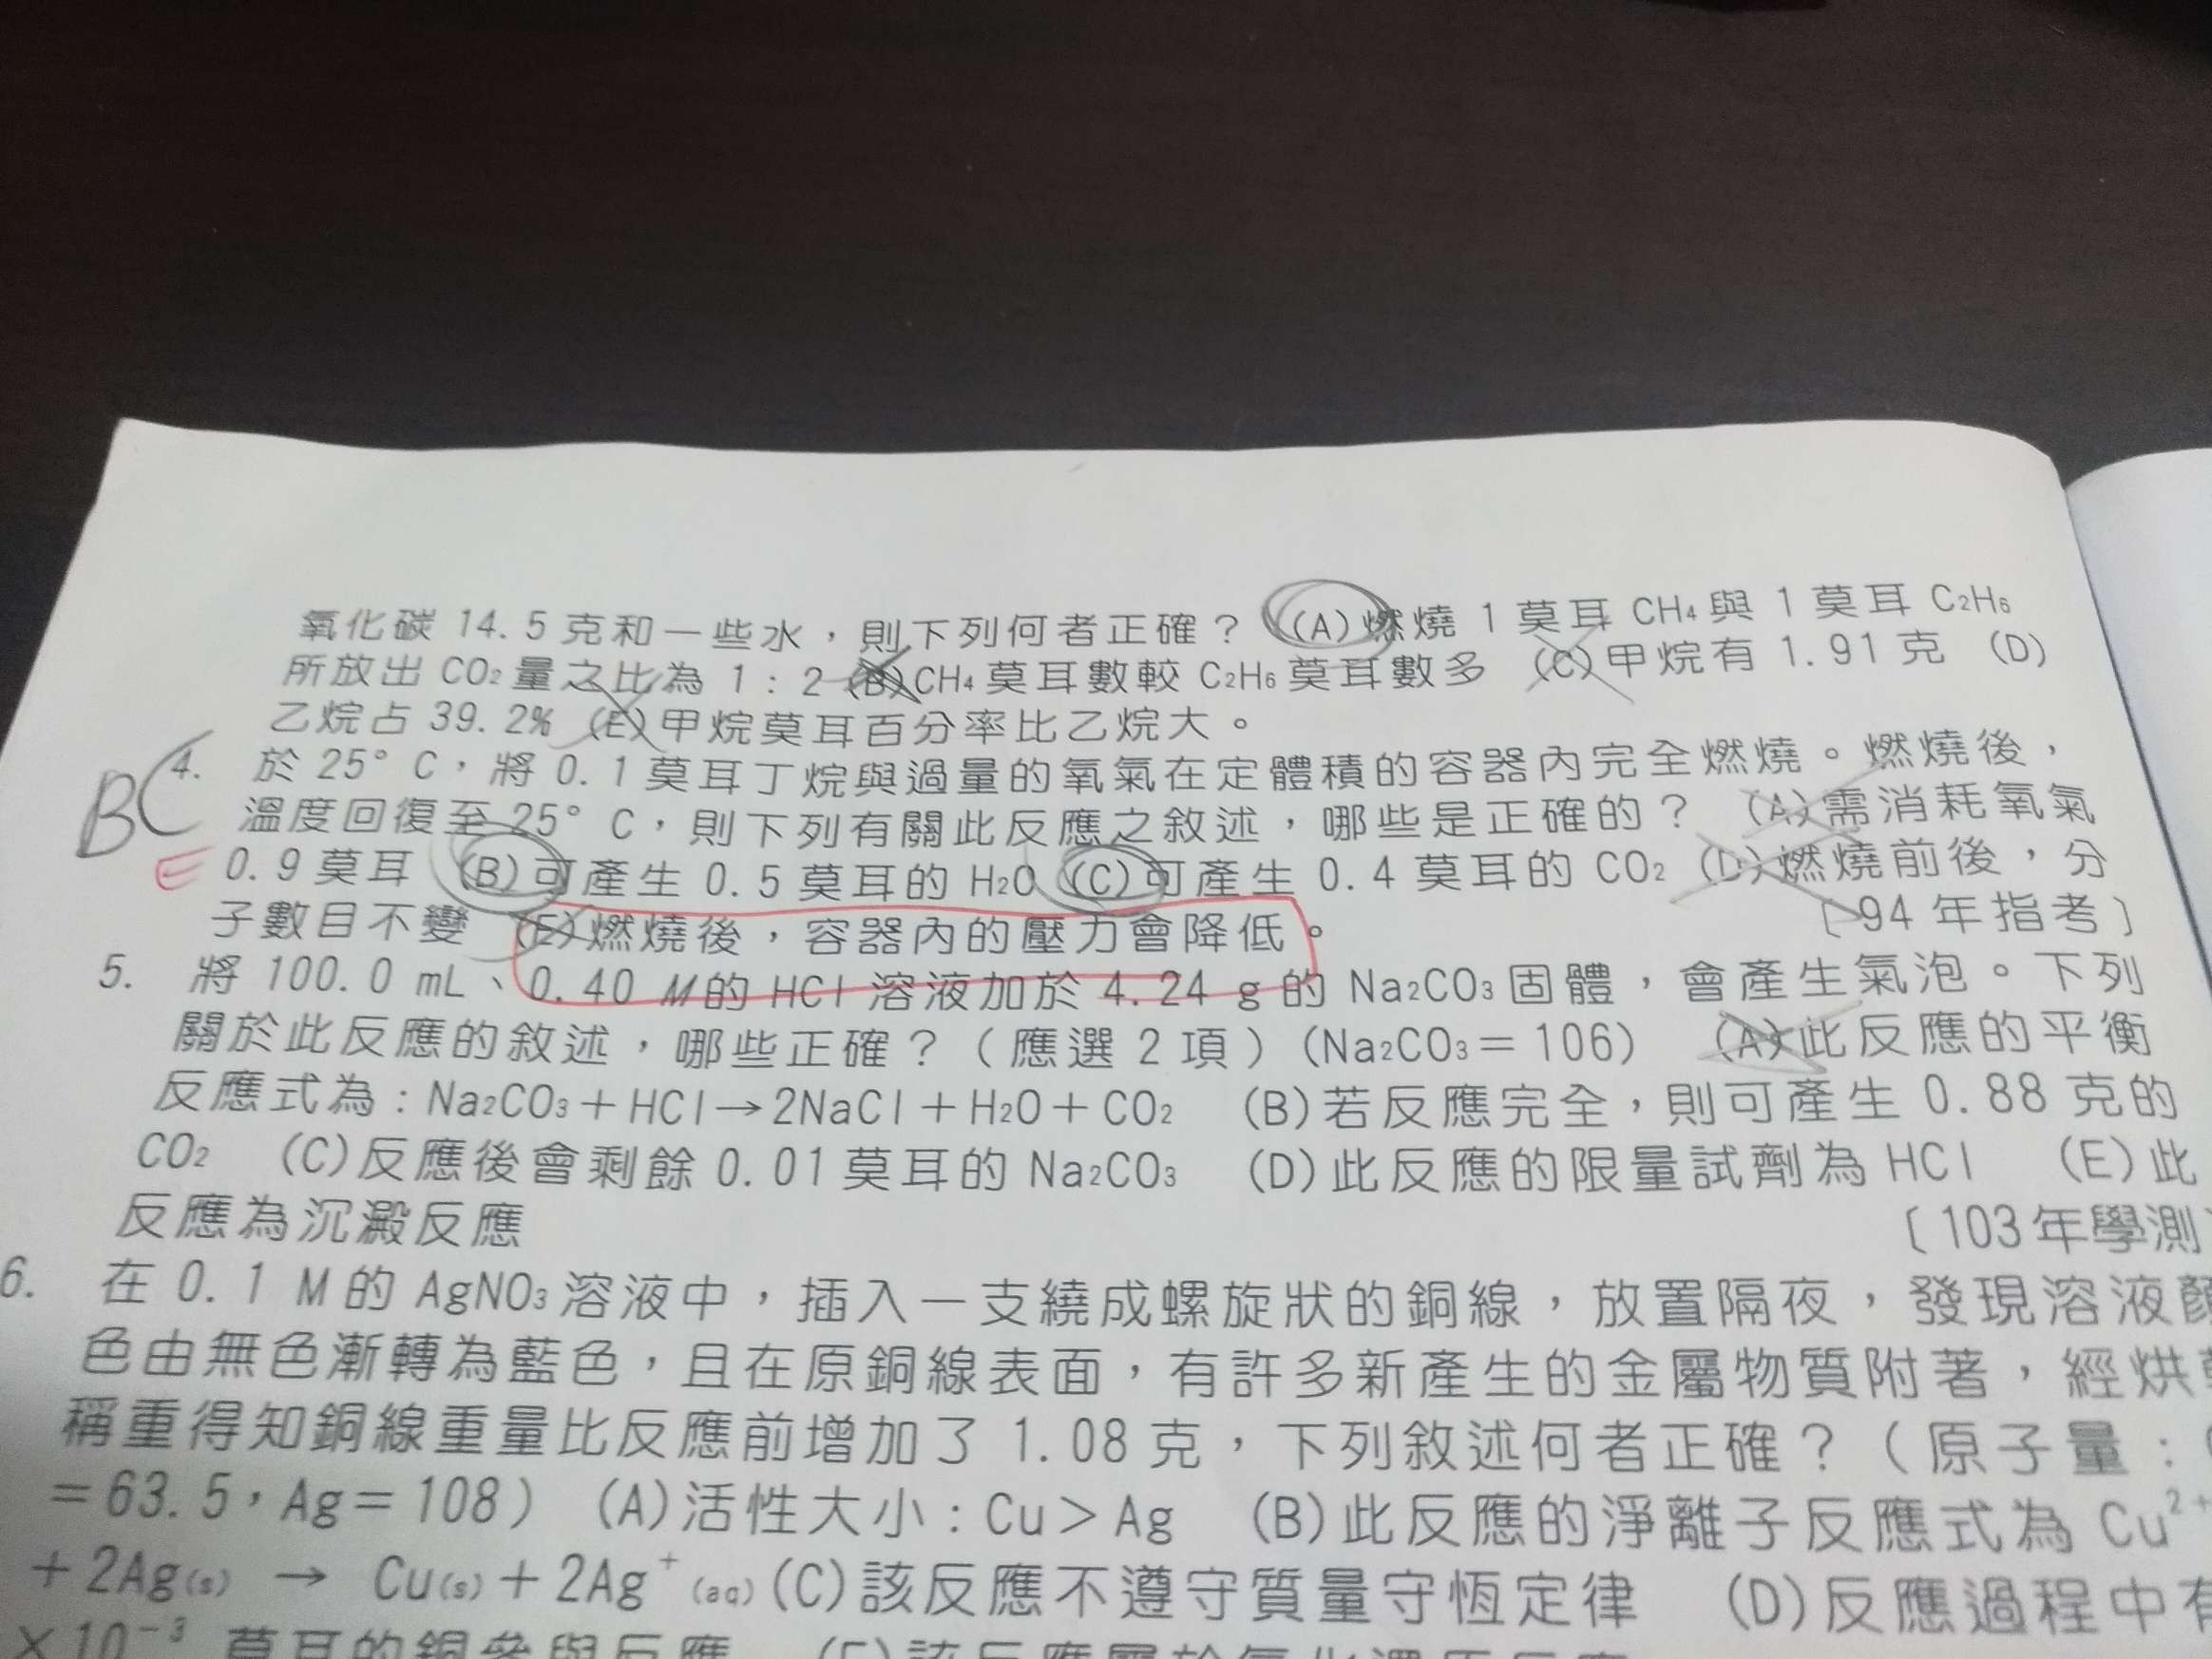 氧化碳 14.5 克和一些水，則下列何者正確？ (A)燃燒 1 莫耳 CH₄ 與 1 莫耳 C₂H₆
所放出 CO₂ 量之比為 1：2 (B)CH₄ 莫耳數較 C₂H₆ 莫耳數多 (C)甲烷有 1.91 克 (D)
乙烷占 39.2% (E)甲烷莫耳百分率比乙烷大。
BC
E
4. 於 25°C，將 0.1 莫耳丁烷與過量的氧氣在定體積的容器內完全燃燒。燃燒後，
溫度回復至 25°C，則下列有關此反應之敘述，哪些是正確的？ (A)需消耗氧氣
0.9 莫耳 (B)可產生 0.5 莫耳的 H₂O (C)可產生 0.4 莫耳的 CO₂ (D)燃燒前後，分
子數目不變 (E)燃燒後，容器內的壓力會降低。 〔94 年指考〕
5. 將 100.0 mL、0.40 M 的 HCl 溶液加於 4.24 g 的 Na₂CO₃ 固體，會產生氣泡。下列
關於此反應的敘述，哪些正確？（應選 2 項）(Na₂CO₃＝106) (A)此反應的平衡
反應式為：Na₂CO₃＋HCl→2NaCl＋H₂O＋CO₂ (B)若反應完全，則可產生 0.88 克的
CO₂ (C)反應後會剩餘 0.01 莫耳的 Na₂CO₃ (D)此反應的限量試劑為 HCl (E)此
反應為沉澱反應 〔103 年學測
6. 在 0.1 M 的 AgNO₃ 溶液中，插入一支繞成螺旋狀的銅線，放置隔夜，發現溶液顏
色由無色漸轉為藍色，且在原銅線表面，有許多新產生的金屬物質附著，經烘
稱重得知銅線重量比反應前增加了 1.08 克，下列敘述何者正確？（原子量：
＝63.5，Ag＝108） (A)活性大小：Cu＞Ag (B)此反應的淨離子反應式為 Cu²⁺
＋2Ag(s) → Cu(s)＋2Ag⁺(aq) (C)該反應不遵守質量守恆定律 (D)反應過程中有
×10⁻³ 莫耳的銅參與反應